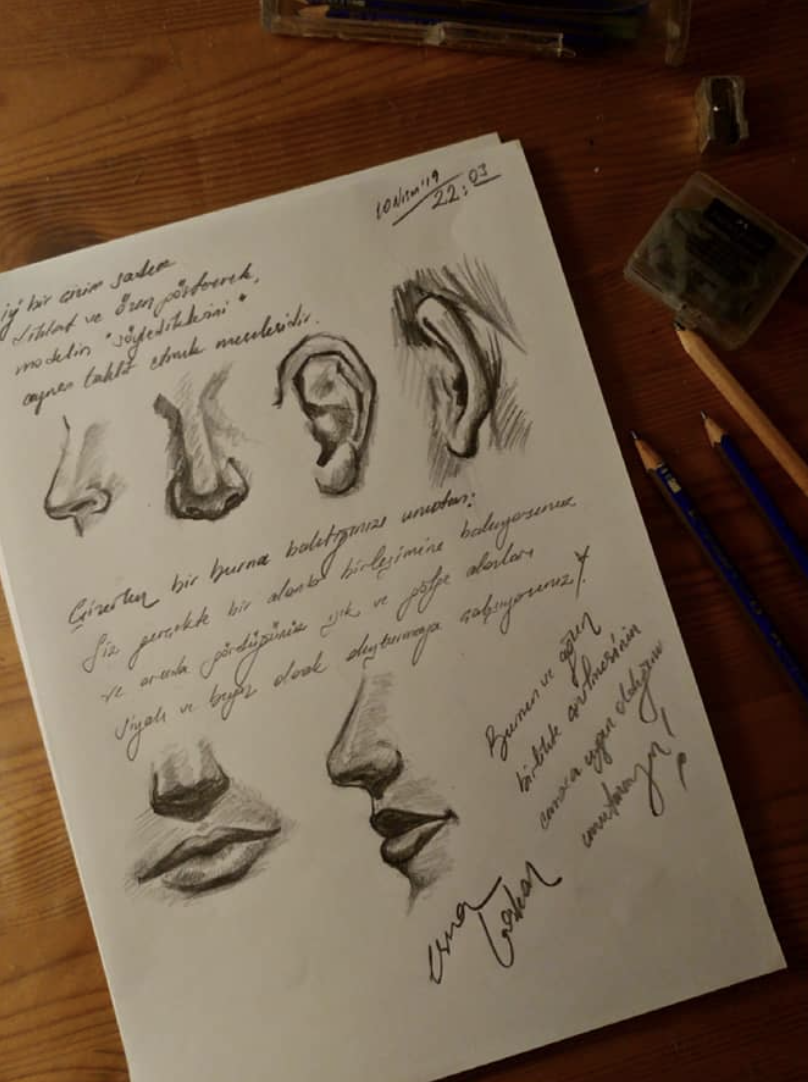 10 Nisan'19
22:03
iyi bir çizim sadece
dikkat ve özen göstererek,
modelin "söylediklerini"
aynen taklit etmek meselesidir.
Çizerken bir burna baktığınızı unutun:
Siz gerçekte bir alanlar birleşimine bakıyorsunuz
ve orada gördüğünüz ışık ve gölge alanları
siyah ve beyaz olarak oluşturmaya çalışıyorsunuz!
Burnun ve ağzın
birlikte çizilmesinin
amaca uygun olduğunu
unutmayın!
esna